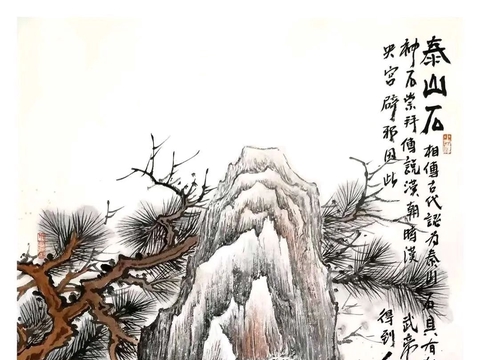 泰山石
相傳古代認为泰山石具有
神石崇拜傳說漢朝時漢武帝
央宮辟邪因此得到